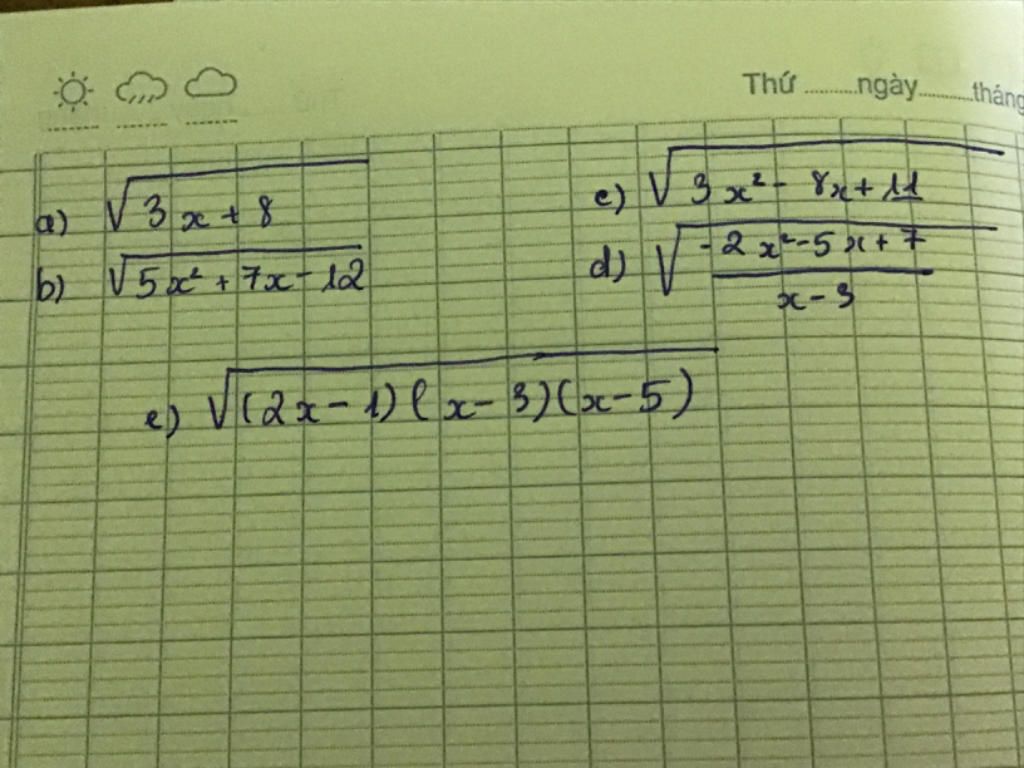 Thứ ..........ngày..........tháng
a) √(3x + 8)
c) √(3x² - 8x + 11)
b) √(5x² + 7x - 12)
d) √((-2x² - 5x + 7)/(x - 3))
e) √((2x - 1)(x - 3)(x - 5))